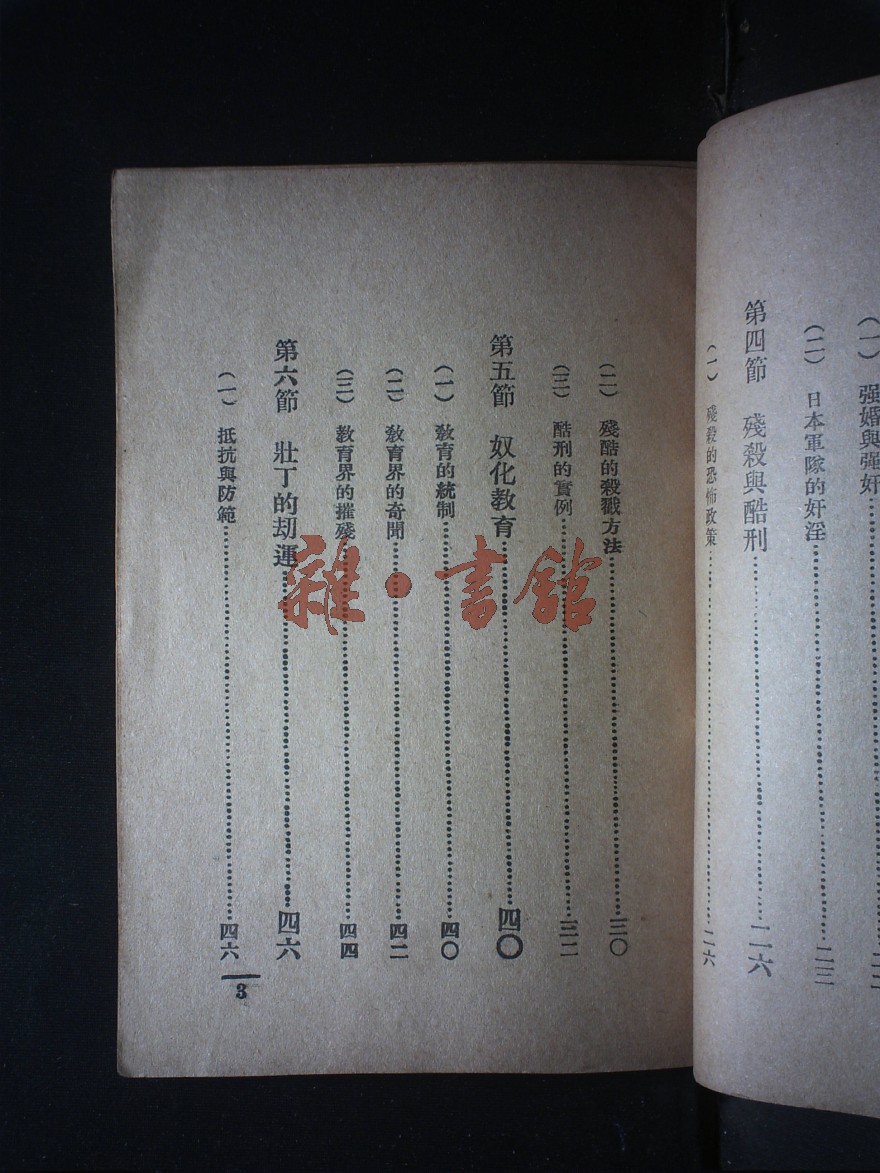 (一) 强婚與强奸
(二) 日本軍隊的奸淫……二三
第四節 殘殺與酷刑……二六
(一) 殘殺的恐怖政策……二六
(二) 殘酷的殺戮方法……三〇
(三) 酷刑的實例……三二
第五節 奴化教育……四〇
(一) 教育的統制……四〇
(二) 教育界的奇聞……四二
(三) 教育界的摧殘……四四
第六節 壯丁的刧運……四六
(一) 抵抗與防範……四六
3
雜·書館